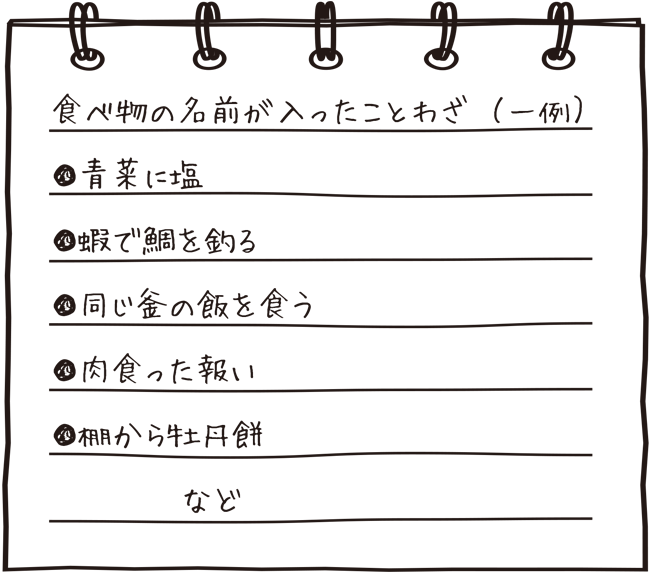 食べ物の名前が入ったことわざ（一例）
●青菜に塩
●蝦で鯛を釣る
●同じ釜の飯を食う
●肉食った報い
●棚から牡丹餅
など